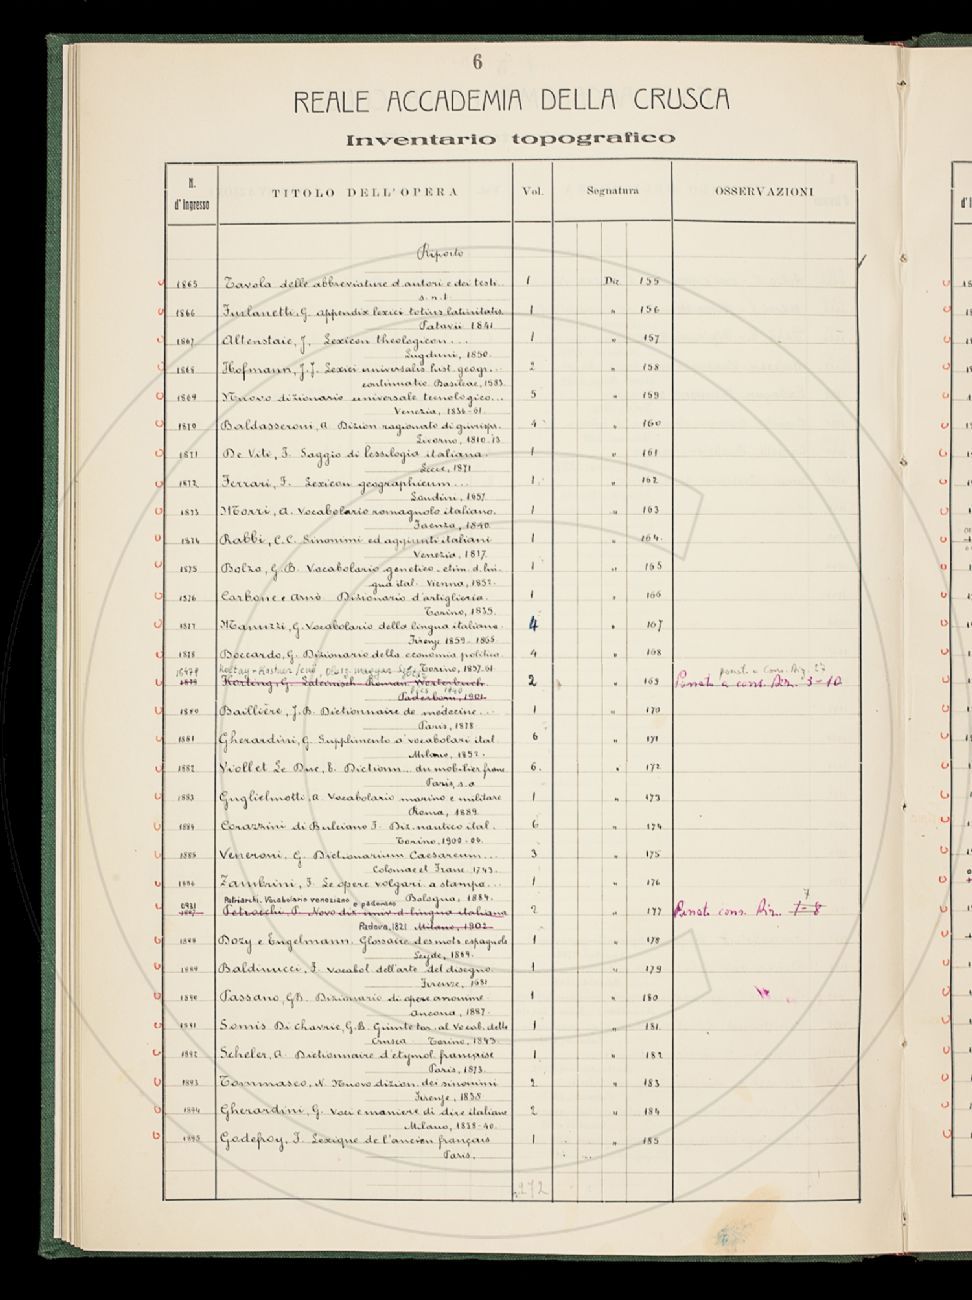 6
REALE ACCADEMIA DELLA CRUSCA
Inventario topografico
N. d'Ingresso TITOLO DELL'OPERA Vol. Segnatura OSSERVAZIONI
Riporto
1865 Tavola delle abbreviature d'autori e dei testi.. 1 Diz 155
s.n.t.
1866 Furlanetti, G. Appendix lexici totius latinitatis. 1 " 156
Patavii 1841
1867 Altenstaic, J. Lexicon theologicon... 1 " 157
Lugduni, 1850.
1868 Hofmann, J.J. Lexici universalis hist. geogr... 2 " 158
continuatio Basileae, 1683.
1869 Nuovo dizionario universale tecnologico... 5 " 159
Venezia, 1836-61.
1870 Baldasseroni, A. Dizion ragionato di giurispr. 4 " 160
Livorno, 1810-13
1871 De Viti, F. Saggio di lessilogia italiana. 1 " 161
Lecce, 1871
1872 Ferrari, F. Lexicon geographicum... 1 " 162
Londini, 1657.
1873 Morri, A. Vocabolario romagnolo italiano. 1 " 163
Faenza, 1840.
1874 Rabbi, C.C. Sinonimi ed aggiunti italiani 1 " 164.
Venezia, 1817.
1875 Bolza, G.B. Vocabolario genetico-etim. d. lin- 1 " 165
gua ital. Vienna, 1852.
1876 Carbone e Arnò Dizionario d'artiglieria. 1 " 166
Torino, 1835.
1877 Manuzzi, G. Vocabolario della lingua italiana. 4 " 167
Firenze 1859-1865
1878 Boccardo, G. Dizionario della economia politica. 4 " 168
Torino, 1857-61.
1879 Körting, G. Lateinisch-Roman. Wörterbuch 2 " 169 Passato a cons. Diz. 3-10
Paderborn, 1901.
1880 Baillière, J.B. Dictionnaire de médecine... 1 " 170
Paris, 1878.
1881 Gherardini, G. Supplimento a' vocabolari ital. 6 " 171
Milano, 1852.
1882 Viollet Le Duc, E. Dictionn... du mobilier franc. 6. " 172
Paris, s.a.
1883 Guglielmotti, A. Vocabolario marino e militare 1 " 173
Roma, 1889.
1884 Corazzini di Bulciano F. Diz. nautico ital. 6 " 174
Torino, 1900-06.
1885 Veneroni, G. Dictionarium Caesareum... 3 " 175
Coloniae et Franc. 1743.
1886 Zambrini, F. Le opere volgari a stampa... 1 " 176
Bologna, 1884.
Patriarchi. Vocabolario veneziano e padovano
0931 1887 Petrocchi, P. Novo diz. univ. d. lingua italiana 2 " 177 Passato cons. Diz. 7-8 7
Padova, 1821 Milano, 1902
1888 Dozy e Engelmann. Glossaire des mots espagnols 1 " 178
Leyde, 1869.
1889 Baldinucci, F. Vocabol. dell'arte del disegno. 1 " 179
Firenze, 1681
1890 Passano, G.B. Dizionario di opere anonime 1 " 180
Ancona, 1887.
1891 Somis Di Chavrie, G.B. Giunte tor. al Vocab. della 1 " 181.
Crusca Torino, 1843.
1892 Scheler, A. Dictionnaire d'étymol. française 1 " 182
Paris, 1873.
1893 Tommaseo, N. Nuovo dizion. dei sinonimi 2 " 183
Firenze, 1838
1894 Gherardini, G. Voci e maniere di dire italiane 2 " 184
Milano, 1838-40.
1895 Godefroy, F. Lexique de l'ancien français 1 " 185
Paris.
272